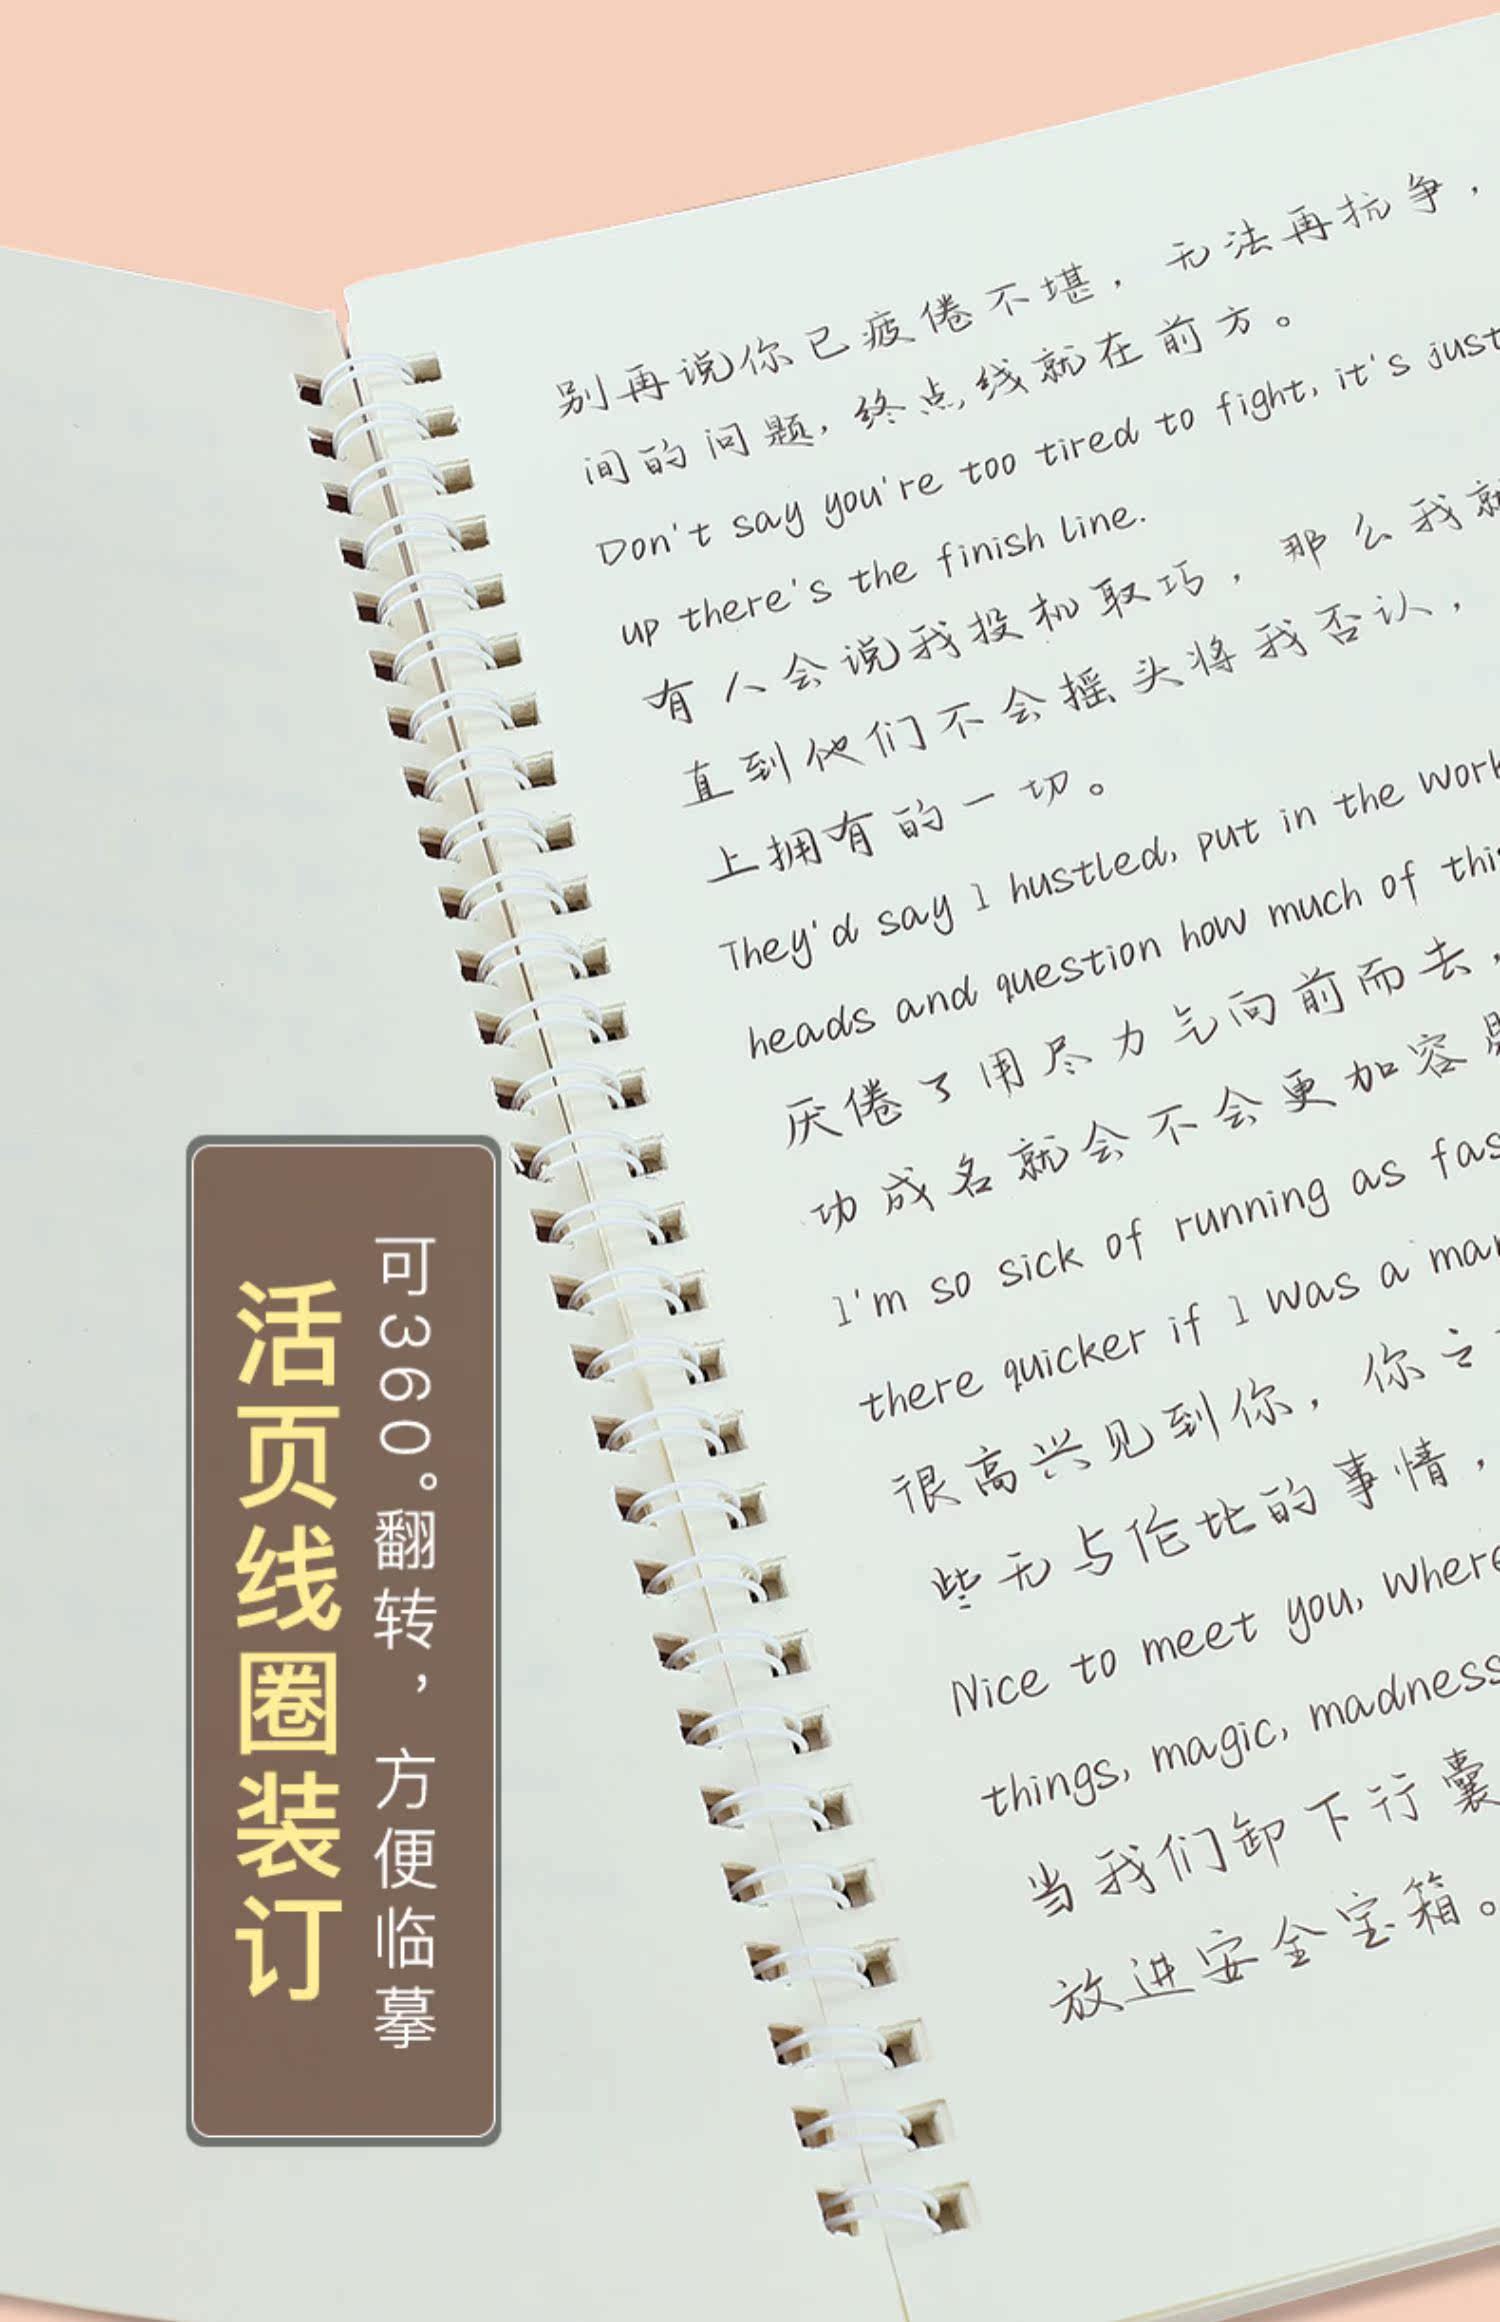 别再说你已疲倦不堪，无法再抗争，
间的问题，终点线就在前方。
Don't say you're too tired to fight, it's just
up there's the finish line.
有人会说我投机取巧，那么我就
直到他们不会摇头将我否认，
上拥有的一切。
They'd say I hustled, put in the work
heads and question how much of this
厌倦了用尽力气向前而去，
功成名就会不会更加容易
I'm so sick of running as fas
there quicker if I was a man
很高兴见到你，你之
些无与伦比的事情，
Nice to meet you, where
things, magic, madness
当我们卸下行囊
放进安全宝箱。
可360°翻转，方便临摹
活页线圈装订